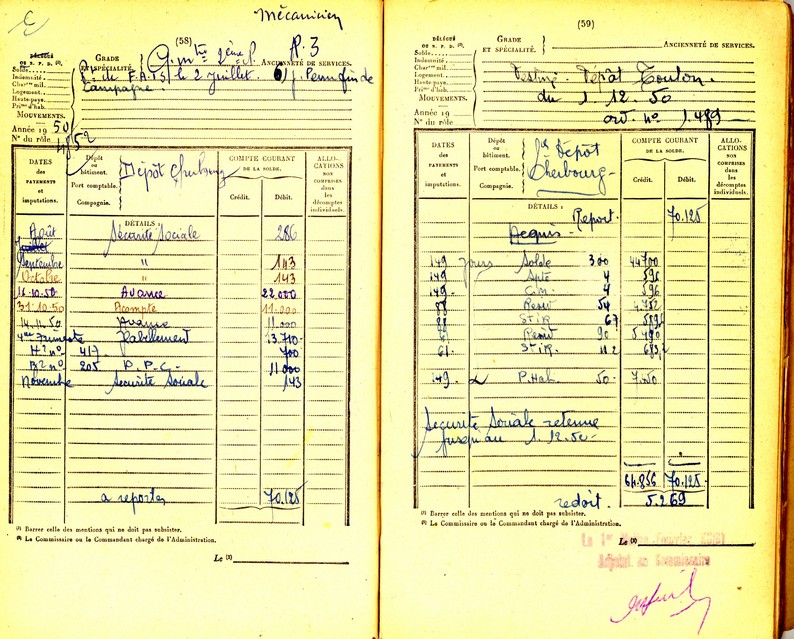 Mécanicien
(58)
DÉLÉGUÉ
OU N. P. D. (1).
Solde
Indemnité
Charges mil.
Logement
Haute-paye
Prime d'hab.
MOUVEMENTS.
Année 1950
N° du rôle 4852
GRADE
ET SPÉCIALITÉ.
2ème
R. 3
ANCIENNETÉ DE SERVICES.
le 2 juillet. fin de
Campagne.
DATES
des
PAYEMENTS
et
imputations.
Dépôt
ou
bâtiment.
Port comptable.
Compagnie.
Dépôt Cherbourg
COMPTE COURANT
DE LA SOLDE.
Crédit.
Débit.
ALLO-
CATIONS
non
comprises
dans
les
décomptes
individuels.
DÉTAILS :
Août Sécurité Sociale 286
Septembre " 143
Octobre " 143
16.10.50 Avance 22.000
31.10.50 Acompte 11.000
14.11.50 Avance 11.000
4ème trimestre habillement 3.710
H 2 n° 417 700
B 2 n° 205 P.P.C. 11.000
Novembre Sécurité Sociale 143
à reporter 70.125
(1) Barrer celle des mentions qui ne doit pas subsister.
(2) Le Commissaire ou le Commandant chargé de l'Administration.
Le (2)
(59)
DÉLÉGUÉ
OU N. P. D. (1).
Solde
Indemnité
Charges mil.
Logement
Haute-paye
Prime d'hab.
MOUVEMENTS.
Année 19
N° du rôle
GRADE
ET SPÉCIALITÉ.
ANCIENNETÉ DE SERVICES.
Destiné. Dépôt Toulon.
du 1.12.50
ord. n° 1.489
DATES
des
PAYEMENTS
et
imputations.
Dépôt
ou
bâtiment.
Port comptable.
Compagnie.
Dépôt
Cherbourg
COMPTE COURANT
DE LA SOLDE.
Crédit.
Débit.
ALLO-
CATIONS
non
comprises
dans
les
décomptes
individuels.
DÉTAILS :
Report. 70.125
Acquis
149 jours Solde 300 44700
149 4 596
149 4 596
88 54 4.752
88 STIR 67 5896
61 90 5490
61. STIR 112
149. P. Hab. 50
Sécurité Sociale retenue
jusqu'au 1.12.50
61.856 70.125
redoit. 5.269
(1) Barrer celle des mentions qui ne doit pas subsister.
(2) Le Commissaire ou le Commandant chargé de l'Administration.
Le (2)